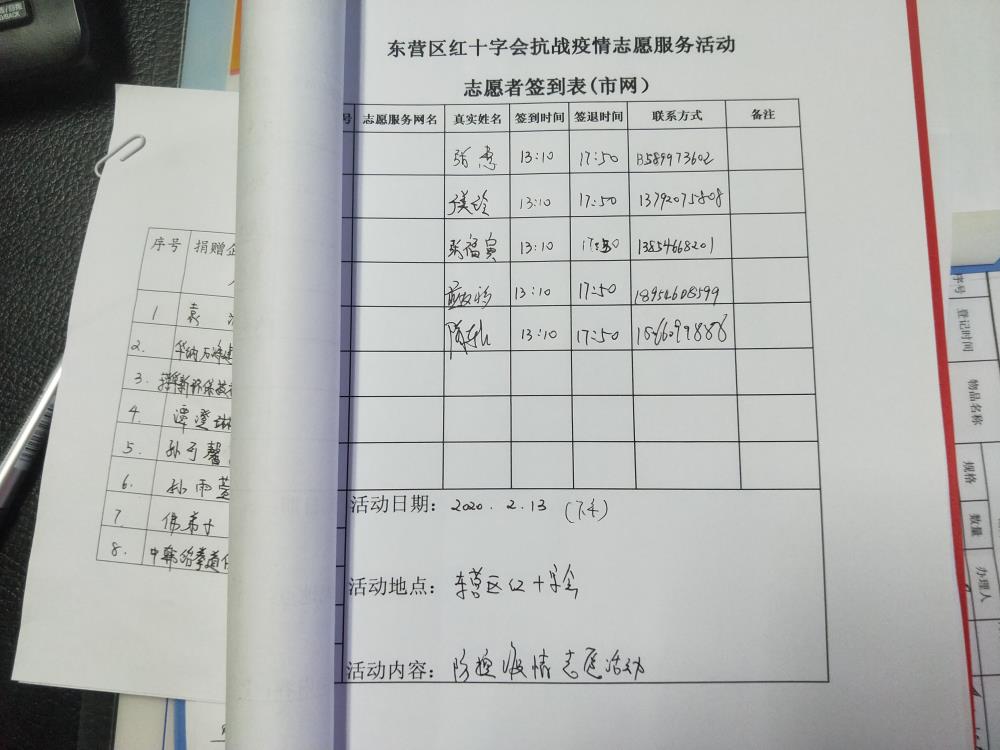 东营区红十字会抗战疫情志愿服务活动
志愿者签到表(市网）
号 志愿服务网名 真实姓名 签到时间 签退时间 联系方式 备注
张惠 13:10 17:50 13589973602
13:10 17:50 13792075808
张福贞 13:10 17:50 13854668201
13:10 17:50 18954608599
13:10 17:50
活动日期：2020.2.13（下午）
活动地点：东营区红十字会
活动内容：防控疫情志愿活动
序号 捐赠企
1 袁
2.
3.
4. 谭澄琳
5. 孙于馨
6. 孙雨萱
7 佛弟子
8. 中韩跆拳道
序号
登记时间
物品名称
规格
数量
办理人